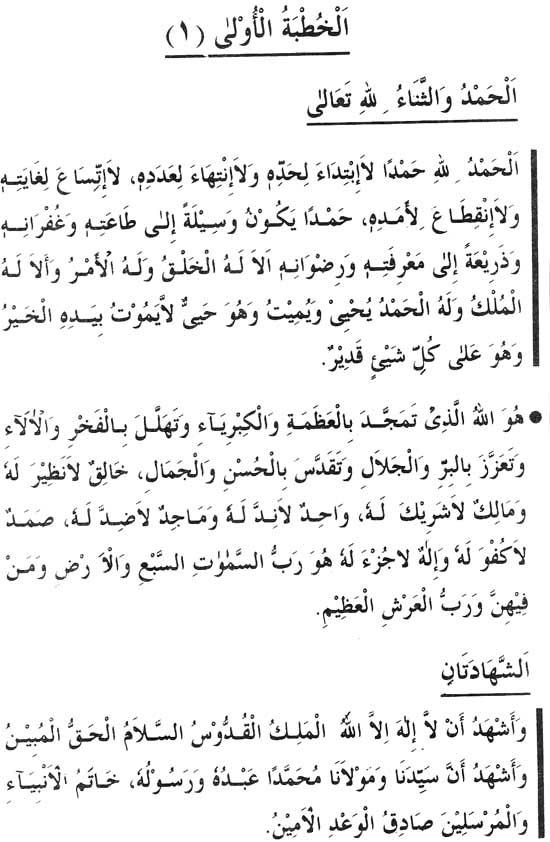 اَلْخُطْبَةُ الْأُوْلٰى (١)
اَلْحَمْدُ وَالثَّنَاءُ لِلهِ تَعَالٰى
اَلْحَمْدُ لِلهِ حَمْدًا لاَإِبْتِدَاءَ لِحَدِّهٖ وَلاَإِنْتِهَاءَ لِعَدَدِهٖ، لاَإِتِّسَاعَ لِغَايَتِهٖ
وَلاَإِنْقِطَاعَ لِأَمَدِهٖ، حَمْدًا يَكُوْنُ وَسِيْلَةً إِلٰى طَاعَتِهٖ وَغُفْرَانِهٖ
وَذَرِيْعَةً إِلٰى مَعْرِفَتِهٖ وَرِضْوَانِهٖ اَلاَ لَهُ الْخَلْقُ وَلَهُ الْأَمْرُ وَأَلاَ لَهُ
الْمُلْكُ وَلَهُ الْحَمْدُ يُحْيِىْ وَيُمِيْتُ وَهُوَ حَيٌّ لاَّيَمُوْتُ بِيَدِهِ الْخَيْرُ
وَهُوَ عَلٰى كُلِّ شَيْئٍ قَدِيْرٌ.
● هُوَ اللهُ الَّذِىْ تَمَجَّدَ بِالْعَظَمَةِ وَالْكِبْرِيَآءِ وَتَهَلَّلَ بِالْفَخْرِ وَالْاٰلَآءِ
وَتَعَزَّزَ بِالْبِرِّ وَالْجَلاَلِ وَتَقَدَّسَ بِالْحُسْنِ وَالْجَمَالِ، خَالِقٌ لاَنَظِيْرَ لَهٗ
وَمَالِكٌ لاَشَرِيْكَ لَهٗ، وَاحِدٌ لاَنِدَّ لَهٗ وَمَاجِدٌ لاَضِدَّ لَهٗ، صَمَدٌ
لاَكُفْوَ لَهٗ وَإِلٰهٌ لاَجُزْءَ لَهٗ هُوَ رَبُّ السَّمٰوٰتِ السَّبْعِ وَالْاَرْضِ وَمَنْ
فِيْهِنَّ وَرَبُّ الْعَرْشِ الْعَظِيْمِ.
اَلشَّهَادَتَانِ
وَأَشْهَدُ أَنْ لاَّ إِلٰهَ إِلاَّ اللهُ الْمَلِكُ الْقُدُّوْسُ السَّلاَمُ الْحَقُّ الْمُبِيْنُ
وَأَشْهَدُ أَنَّ سَيِّدَنَا وَمَوْلاَنَا مُحَمَّدًا عَبْدُهٗ وَرَسُوْلُهٗ، خَاتَمُ الْأَنْبِيَآءِ
وَالْمُرْسَلِيْنَ صَادِقُ الْوَعْدِ الْاَمِيْنُ.